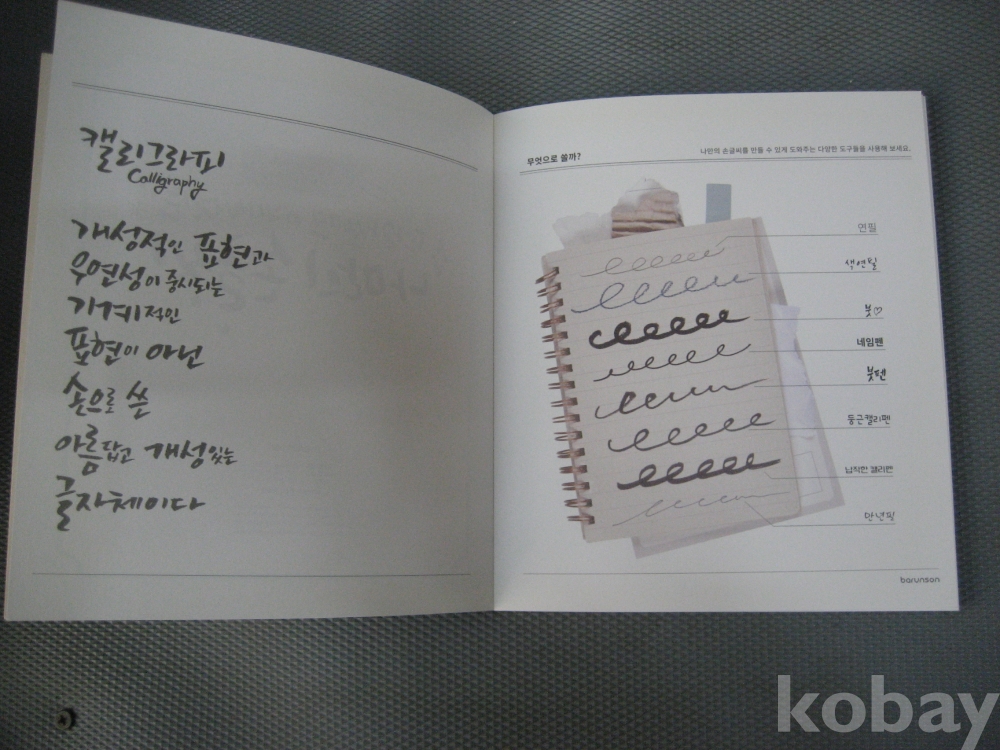 캘리그라피
Calligraphy
개성적인 표현과
우연성이 중시되는
기계적인
표현이 아닌
손으로 쓴
아름답고 개성있는
글자체이다
무엇으로 쓸까?
나만의 손글씨를 만들 수 있게 도와주는 다양한 도구들을 사용해 보세요.
연필
색연필
붓♡
네임펜
붓펜
둥근캘리펜
납작한캘리펜
만년필
barunson
kobay